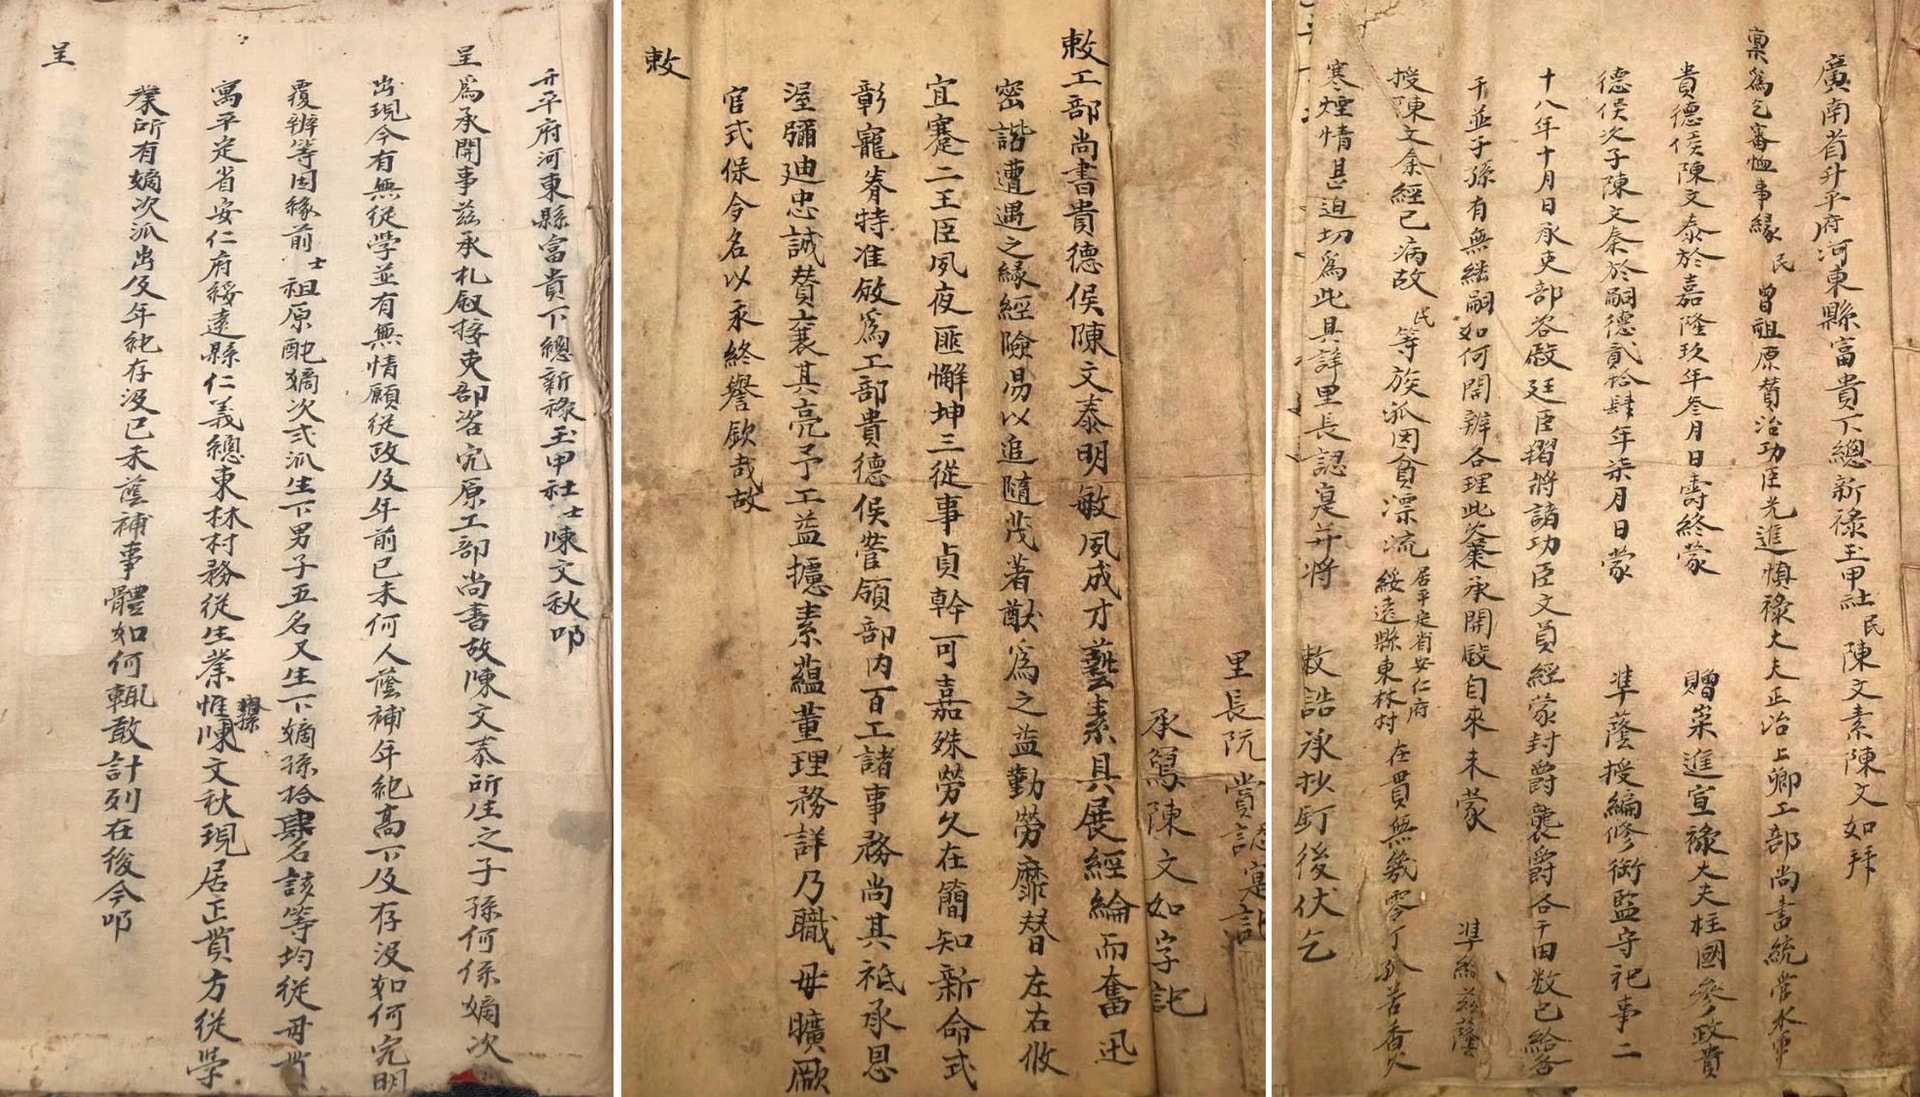 廣南省升平府河東縣富貴下總新祿玉甲社民陳文素陳文如拜
稟爲乞審恤事緣民曾祖原贊治功臣光進慎祿大夫正治上卿工部尚書統管水軍
貴德侯陳文泰於嘉隆玖年叄月日壽終蒙 贈榮進宣祿大夫柱國參政貴
德侯次子陳文秦於嗣德貳拾肆年柒月日蒙 準蔭授編修衔監守祀事二
十八年十月日承吏部咨啟廷臣摺將諸功臣文員經蒙封爵襲爵合干田数已給咨
干並子孫有無繼嗣如何間辨合理此久業承開啟自來未蒙 準給茲蔭
授陳文余經已病故民等族派因貧漂流居平定省安仁府綏遠縣東林村在貫無幾零丁孤苦香火
寒煙情甚迫切爲此具詳里長認寔并將 敕誥承抄訂後伏乞
里長阮賞認寔記
承寫陳文如字記
敕工部尚書貴德侯陳文泰明敏夙成才藝素具展經綸而奮迅
密諧遭遇之緣經險易以追隨茂著猷爲之益勤勞靡替左右攸
宜蹇二王臣夙夜匪懈坤三從事貞幹可嘉殊勞久在簡知新命式
彰寵眷特准敘爲工部貴德侯管領部内百工諸事務尚其祗承恩
渥彌迪忠誠贊襄其亮予工益攄素蘊董理務詳乃職毋曠厥
官式保令名以永終譽欽哉故
敕
升平府河東縣富貴下總新祿玉甲社士陳文秋叩
呈爲承開事茲承札敘接吏部咨究原工部尚書故陳文泰所生之子孫何係嫡次
出現今有無從學並有無情願從政及年前已未何人蔭補年紀高下及存没如何究明
覆辦等因緣前士祖原配嫡次弍派生下男子五名又生下嫡孫拾肆名該等均從毋貫
寓平定省安仁府綏遠縣仁義總東林村務從生業惟嫡孫陳文秋現居正貫方從學
業所有嫡次派出及年紀存没已未蔭補事體如何輒敢計列在後今叩
呈